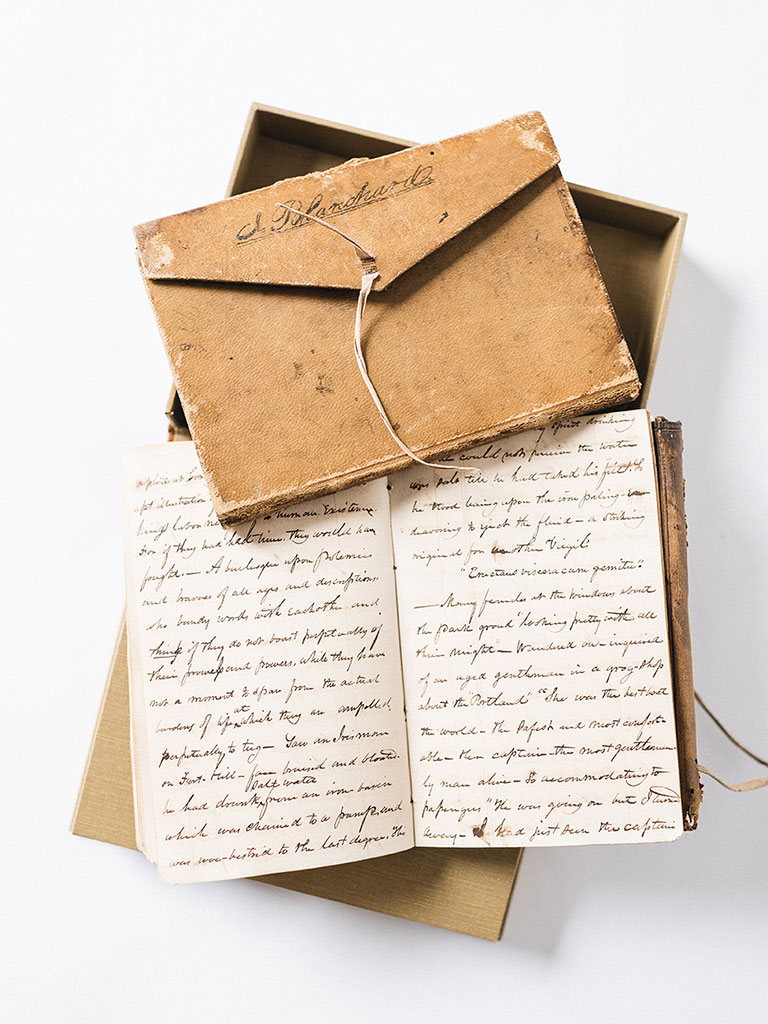 I. Blanchard
upt illustration
kings labor ne human Existence
For if they had had time, they would have
fought. — A burlesque upon polemics
and braves of all ages and descriptions
who bandy words with Eachother, and
things if they do not boast perpetually of
their prowess and powers, while they have
not a moment to spare from the actual
burdens of life at which they are compelled
perpetually to tug — Saw an Irishman
on Fort-hill — face bruised and bloated.
he had drunk salt water from an iron basin
which was chained to a pump, and
was woe-bestrid to the last degree. He
spirit drinking
he could not perceive the water
was salt till he had taken his fill. So
he stood being upon the iron paling en-
deavoring to eject the fluid — a striking
original for another Virgil
"Eructans viscera cum gemitu"
— Many females at the windows about
the park ground "looking pretty with all
their might — Wandered on — inquired
of an aged gentleman in a grog-shop
about the "Portland" "She was the best boat
the world — the safest and most comfort-
able — then captain — the most gentleman-
ly man alive — So accommodating to
passengers" He was going on but I turned
away — I had just been the captain